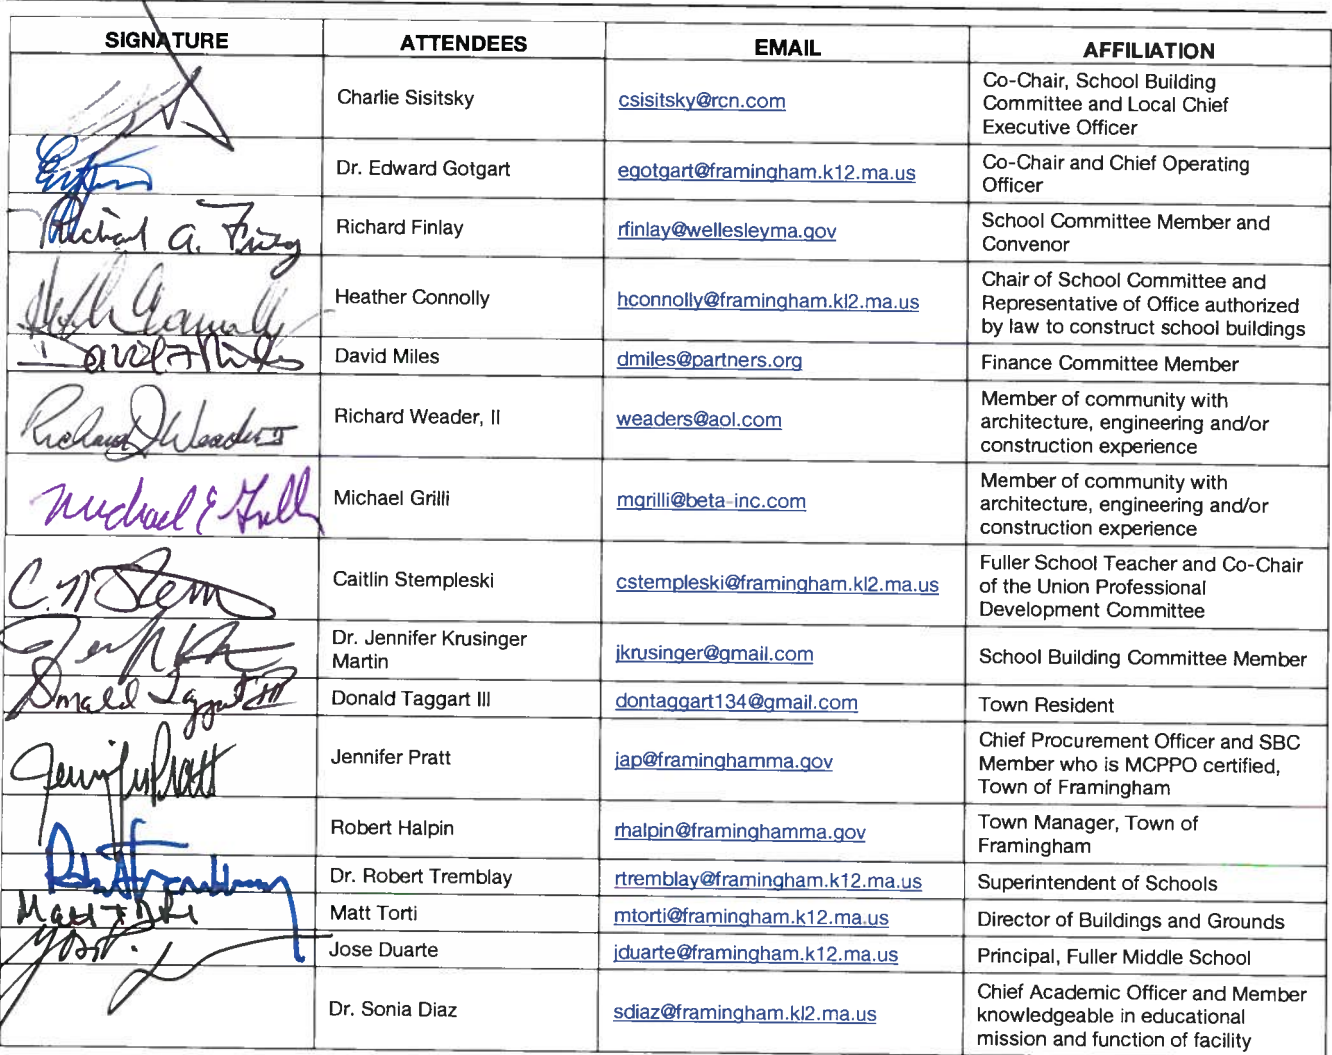 SIGNATURE ATTENDEES EMAIL AFFILIATION
Charlie Sisitsky csisitsky@rcn.com Co-Chair, School Building
Committee and Local Chief
Executive Officer
Dr. Edward Gotgart egotgart@framingham.k12.ma.us Co-Chair and Chief Operating
Officer
Richard A. Finlay Richard Finlay rfinlay@wellesleyma.gov School Committee Member and
Convenor
Heather Connolly Heather Connolly hconnolly@framingham.kl2.ma.us Chair of School Committee and
Representative of Office authorized
by law to construct school buildings
David F Miles David Miles dmiles@partners.org Finance Committee Member
Richard J Weader II Richard Weader, II weaders@aol.com Member of community with
architecture, engineering and/or
construction experience
Michael E Grilli Michael Grilli mgrilli@beta-inc.com Member of community with
architecture, engineering and/or
construction experience
C. N Stem Caitlin Stempleski cstempleski@framingham.kl2.ma.us Fuller School Teacher and Co-Chair
of the Union Professional
Development Committee
Dr. Jennifer Krusinger
Martin jkrusinger@gmail.com School Building Committee Member
Donald Taggart III Donald Taggart III dontaggart134@gmail.com Town Resident
Jennifer Pratt Jennifer Pratt jap@framinghamma.gov Chief Procurement Officer and SBC
Member who is MCPPO certified,
Town of Framingham
Robert Halpin rhalpin@framinghamma.gov Town Manager, Town of
Framingham
Dr. Robert Tremblay rtremblay@framingham.k12.ma.us Superintendent of Schools
Matt Torti Matt Torti mtorti@framingham.k12.ma.us Director of Buildings and Grounds
Jose Duarte jduarte@framingham.k12.ma.us Principal, Fuller Middle School
Dr. Sonia Diaz sdiaz@framingham.kl2.ma.us Chief Academic Officer and Member
knowledgeable in educational
mission and function of facility